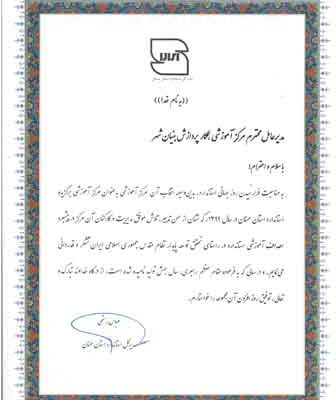 ((بنام خدا))
مدیرعامل محترم مرکز آموزشی همکار پردازش بنیان شهر
با سلام و احترام؛
به مناسبت فرارسیدن روز جهانی استاندارد، بدین وسیله انتخاب آن مرکز آموزشی به عنوان مرکز آموزشی برگزیده
استاندارد استان سمنان در سال ۱۳۹۹ که نشان از حسن تدبیر، تلاش موفق مدیریت و کارکنان آن مرکز در پیشبرد
اهداف آموزشی استاندارد در راستای تحقق توسعه پایدار نظام مقدس جمهوری اسلامی ایران تشکر و قدردانی
می نمایم و در سالی که به فرموده مقام معظم رهبری، سال جهش تولید نامیده شده است، از درگاه خداوند تبارک و
تعالی، توفیق روز افزون آن مجموعه را خواستارم.
مدیرکل استاندارد استان سمنان